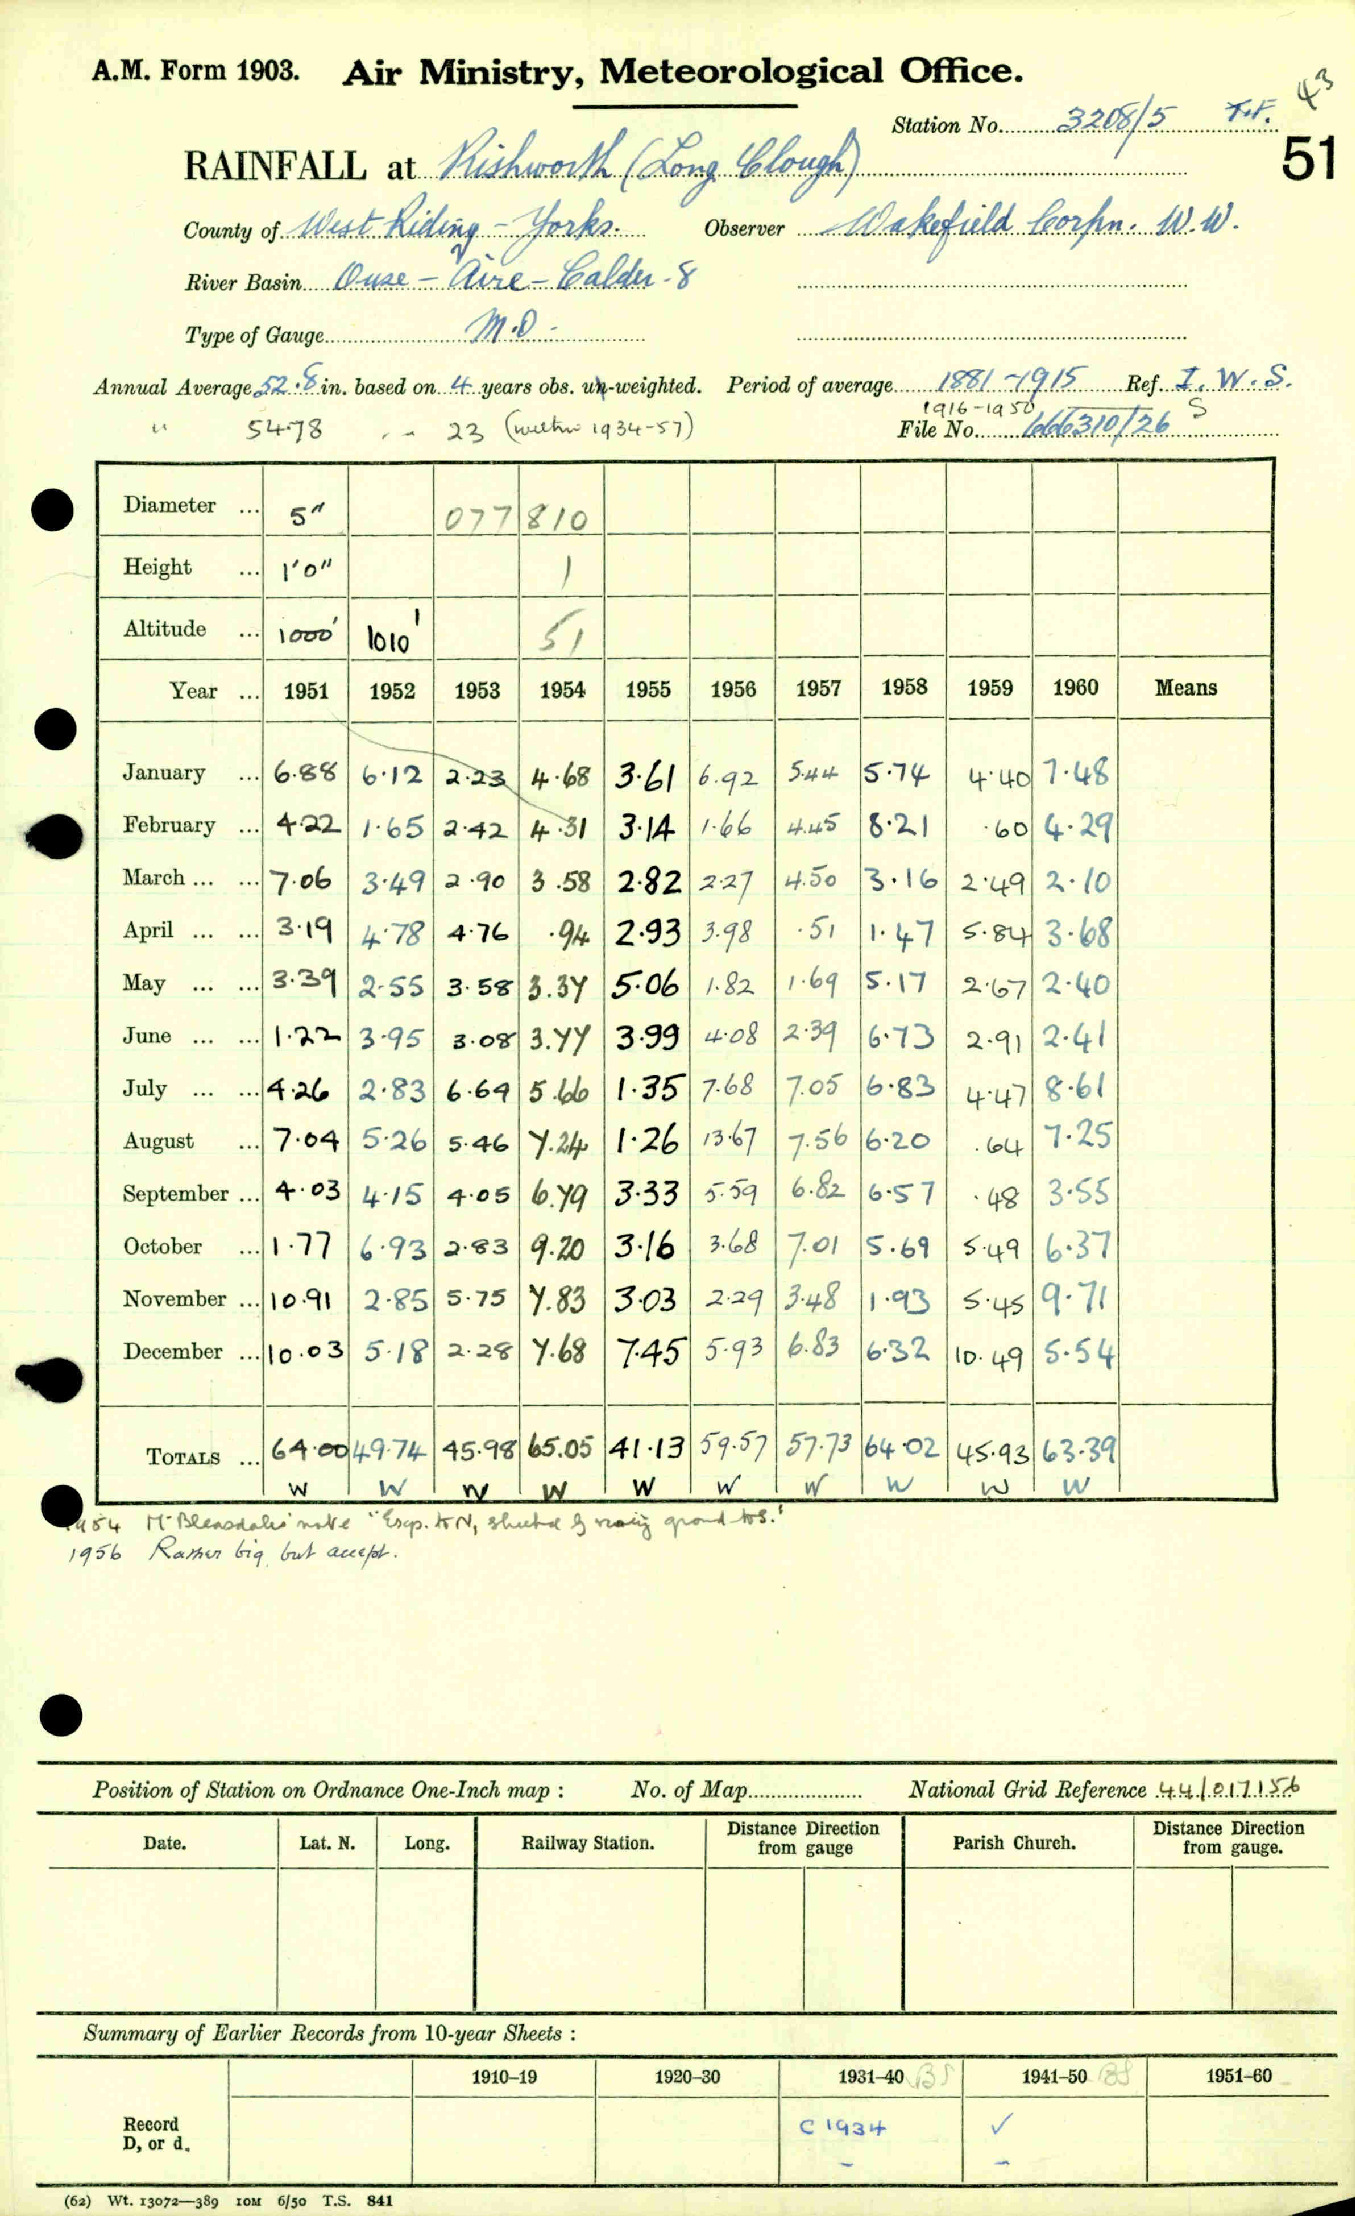 A.M. Form 1903. Air Ministry, Meteorological Office.
43
Station No. 3208/5 T.F.
51
RAINFALL at Rishworth (Long Clough)
County of West Riding - Yorks. Observer Wakefield Corpn. W.W.
River Basin Ouse - Aire - Calder - 8
Type of Gauge M.O.
Annual Average 52.8 in. based on 4 years obs. un-weighted. Period of average 1881-1915 Ref. I.W.S.
1916-1950 S
" 54.78 23 (within 1934-57) File No. 666310/26
Diameter ... 5" 077 810
Height ... 1'0" 1
Altitude ... 1000' 1010' 51
Year ... 1951 1952 1953 1954 1955 1956 1957 1958 1959 1960 Means
January ... 6.88 6.12 2.23 4.68 3.61 6.92 5.44 5.74 4.40 7.48
February ... 4.22 1.65 2.42 4.31 3.14 1.66 4.45 8.21 .60 4.29
March ... ... 7.06 3.49 2.90 3.58 2.82 2.27 4.50 3.16 2.49 2.10
April ... ... 3.19 4.78 4.76 .94 2.93 3.98 .51 1.47 5.84 3.68
May ... ... 3.39 2.55 3.58 3.37 5.06 1.82 1.69 5.17 2.67 2.40
June ... ... 1.22 3.95 3.08 3.77 3.99 4.08 2.39 6.73 2.91 2.41
July ... ... 4.26 2.83 6.64 5.66 1.35 7.68 7.05 6.83 4.47 8.61
August ... 7.04 5.26 5.46 7.24 1.26 13.67 7.56 6.20 .64 7.25
September ... 4.03 4.15 4.05 6.79 3.33 5.59 6.82 6.57 .48 3.55
October ... 1.77 6.93 2.83 9.20 3.16 3.68 7.01 5.69 5.49 6.37
November ... 10.91 2.85 5.75 7.83 3.03 2.29 3.48 1.93 5.45 9.71
December ... 10.03 5.18 2.28 7.68 7.45 5.93 6.83 6.32 10.49 5.54
TOTALS ... 64.00 49.74 45.98 65.05 41.13 59.57 57.73 64.02 45.93 63.39
W W W W W W W W W W
1954 Mr Bleasdale's note "Exp. to N, sheltered by rising ground to S."
1956 Rather big but accept.
Position of Station on Ordnance One-Inch map : No. of Map National Grid Reference 44/017156
Date. Lat. N. Long. Railway Station. Distance Direction from gauge Parish Church. Distance Direction from gauge.
Summary of Earlier Records from 10-year Sheets :
1910-19 1920-30 1931-40 BS 1941-50 BS 1951-60
Record D, or d. C 1934 ✓
- -
(62) Wt. 13072—389 10M 6/50 T.S. 841